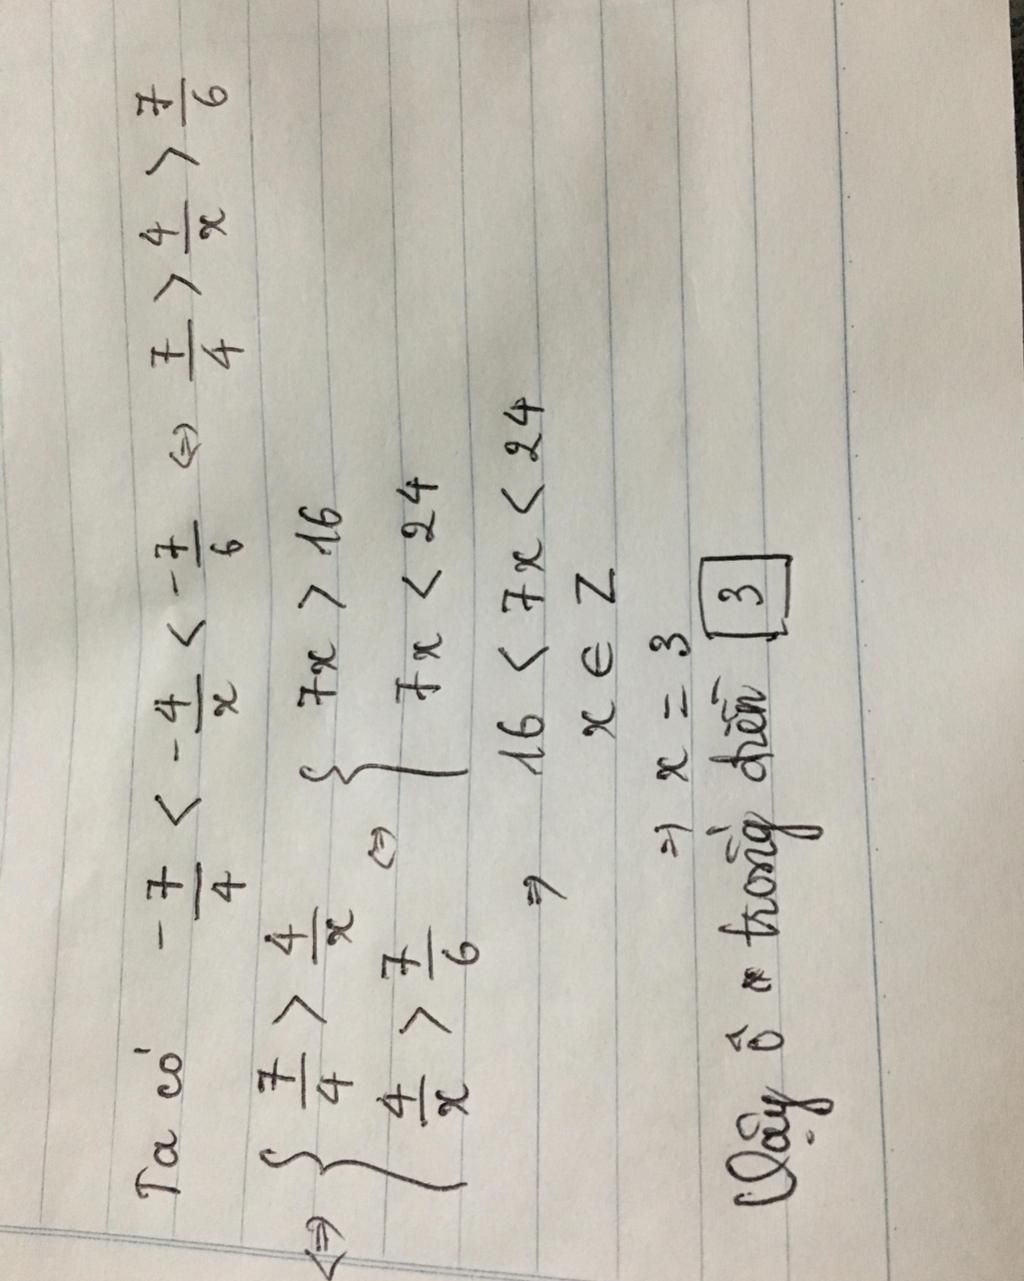 Ta có -7/4 < -4/x < -7/6 ⇔ 7/4 > 4/x > 7/6
⇔ { 7/4 > 4/x ⇔ { 7x > 16
4/x > 7/6 7x < 24
⇒ 16 < 7x < 24
x ∈ Z
⇒ x = 3
Vậy ô trống điền 3